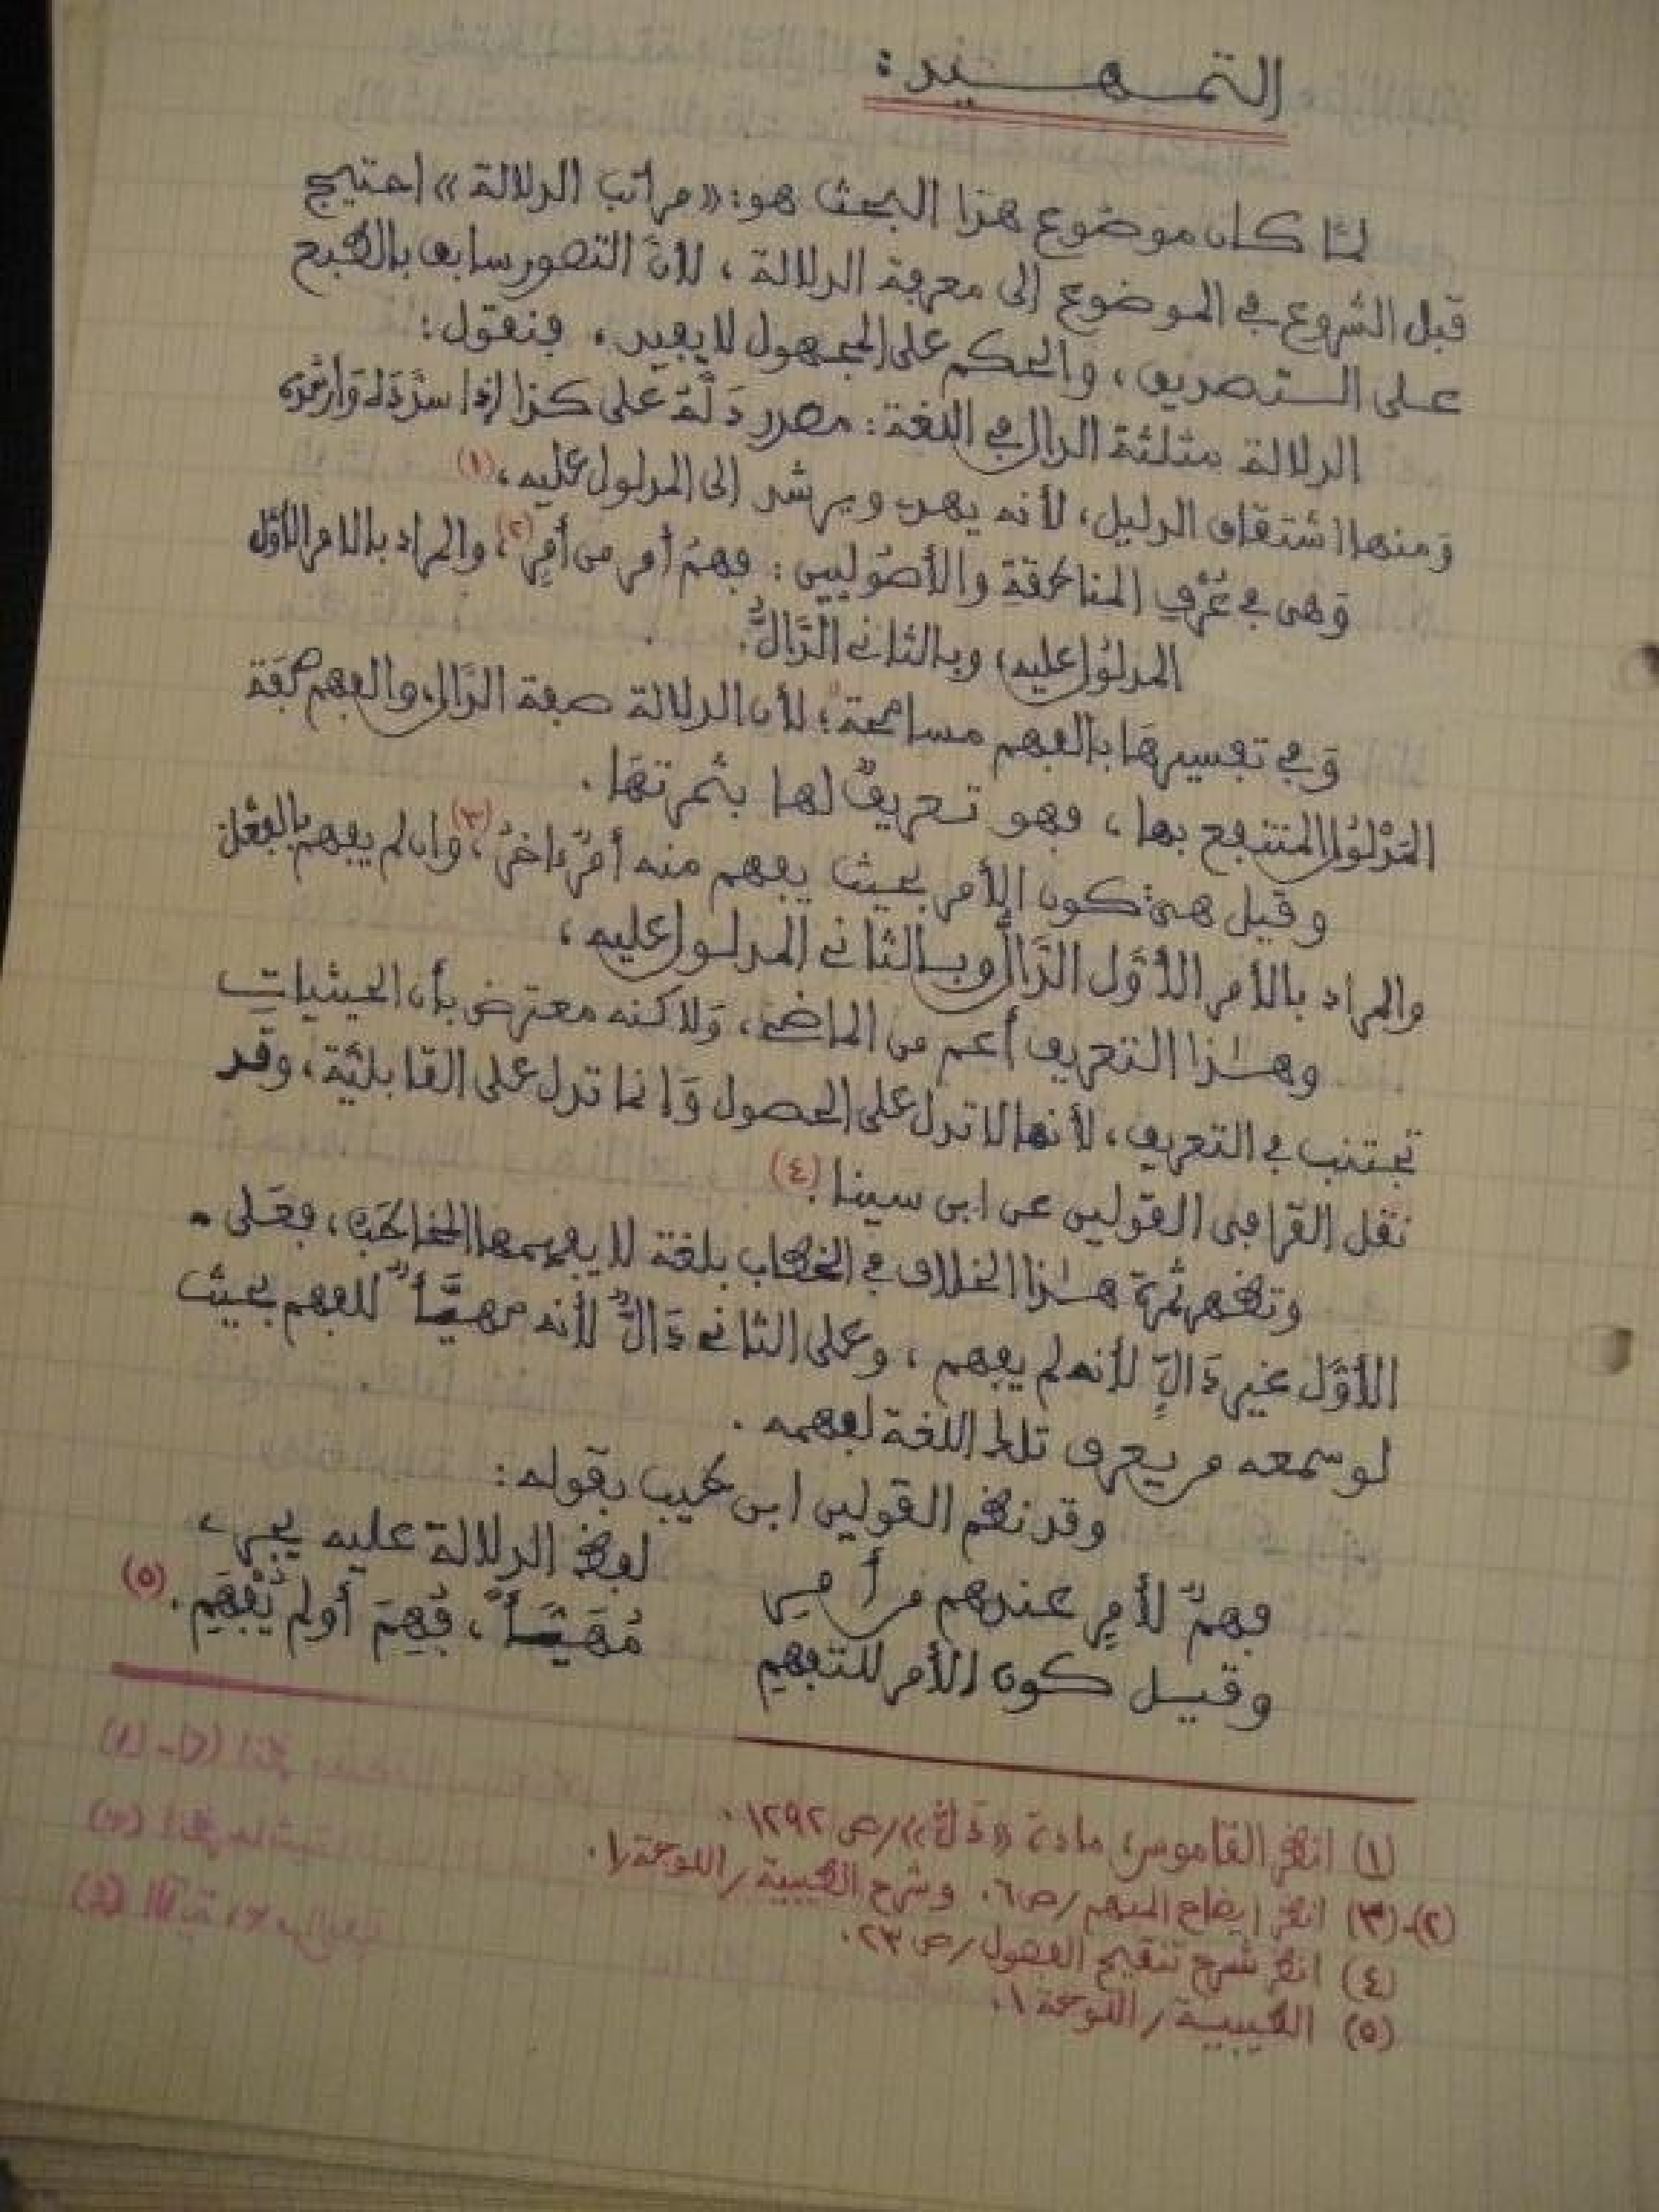 التمهيد:
لما كان موضوع هذا البحث هو: «مراتب الدلالة» احتيج
قبل الشروع في الموضوع إلى معرفة الدلالة، لأن التصور سابق بالطبع
على التصديق، والحكم على المجهول لا يفيد، فنقول:
الدلالة مثلثة الدال في اللغة: مصدر دَلَّهُ على كذا إذا سدَّدَهُ وَأرْشَدَهُ
وَمنها اشتقاق الدليل، لأنه يهدي ويرشد إلى المدلول عليه، (١)
وَهي في عُرْفِ المناطقةِ والأصُوليين: فهمُ أمر من أمرٍ (٢)، والمراد بالأمر الأوَّل
المدلُول عليه، وبالثاني الدَّالُّ.
وَفي تفسيرهَا بالفهم مسامحة؛ لأن الدلالة صفة الدَّال، والفهم صِفَة
المَدْلُول المنتفع بها، فهو تعريفٌ لها بثمرتهَا.
وقيل هي: كون الأمر بحيث يفهم منه أمرٌ ءاخرُ (٣)، وإن لم يفهم بالفِعْل
والمراد بالأمر الأوَّل الدَّالُّ وبالثاني المدلول عليه،
وهٰذا التعريف أعم من الماضي، وَلاكنه معترض بأن الحيثياتِ
تجتنب في التعريف، لأنها لا تدل على الحصول وَإنما تدل على القابليَّة، وقَد
نقل القرافي القولين عن ابن سينا. (٤)
وتظهر ثمرة هٰذا الخلاف في الخطاب بلغة لا يفهمها المخاطَب، فعَلى
الأوَّل غير دَالٍّ لأنه لم يفهم، وعلى الثاني دَالٌّ لأنه مهيَّأٌ للفهم بحيث
لو سمعه من يعرف تلك اللغة لفهمه.
وقد نظم القولين ابن طيب بقوله:
فهمٌ لأمرٍ عندهم من أمر لفظ الدلالة عليه يجري
وقيل كون الأمر للتفهيم مُهَيَّأً، فُهِمَ أو لم يُفْهَمِ. (٥)
(١) انظر القاموس، مادة «دَلَّ»/ص ١٢٩٢.
(٢)-(٣) انظر إيضاح المبهم/ص ٦. وشرح الطيبية/اللوحة ١.
(٤) انظر شرح تنقيح الفصول/ص ٢٣.
(٥) الطيبية/اللوحة ١.